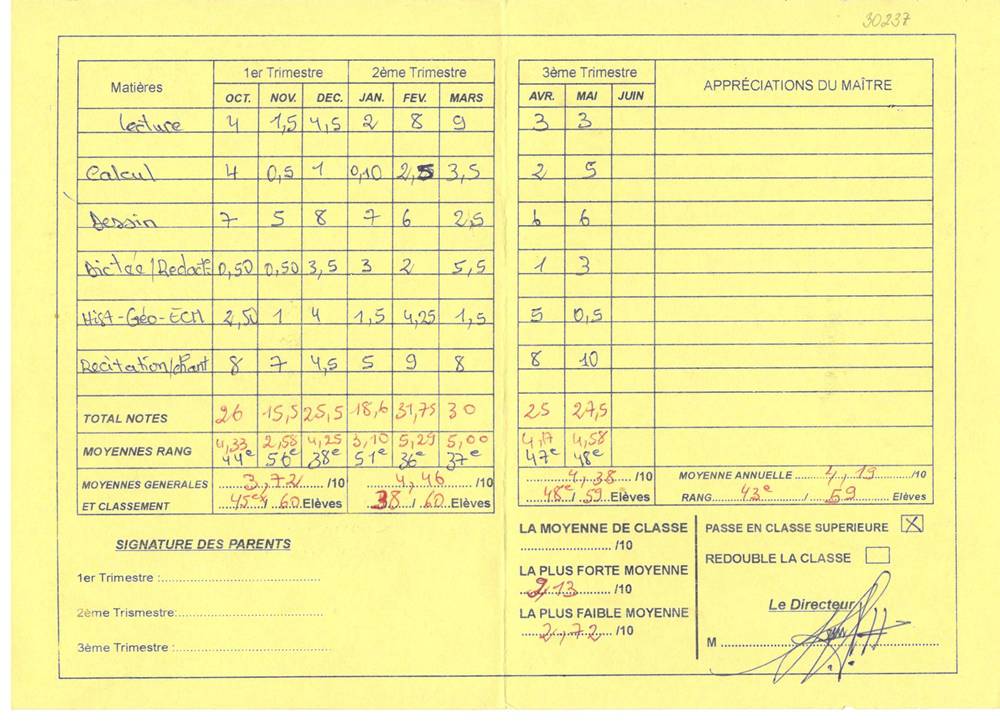 30237
Matières 1er Trimestre 2ème Trimestre 3ème Trimestre APPRÉCIATIONS DU MAÎTRE
OCT. NOV. DEC. JAN. FEV. MARS AVR. MAI JUIN
Lecture 4 1,5 4,5 2 8 9 3 3
Calcul 4 0,5 1 0,10 2,5 3,5 2 5
Dessin 7 5 8 7 6 2,5 6 6
Dictée/Redact° 0,50 0,50 3,5 3 2 5,5 1 3
Hist-Géo-ECM 2,50 1 4 1,5 4,25 1,5 5 0,5
Recitation/chant 8 7 4,5 5 9 8 8 10
TOTAL NOTES 26 15,5 25,5 18,6 31,75 30 25 27,5
MOYENNES RANG 4,33 2,58 4,25 3,10 5,29 5,00 4,17 4,58
44e 56e 38e 51e 36e 37e 47e 48e
MOYENNES GENERALES 3,72 /10 4,46 /10 4,38 /10 MOYENNE ANNUELLE 4,19 /10
ET CLASSEMENT 45e / 60 Elèves 38 / 60 Elèves 48e / 59 Elèves RANG 43e / 59 Elèves
SIGNATURE DES PARENTS
1er Trimestre :
2ème Trismestre:
3ème Trimestre :
LA MOYENNE DE CLASSE
/10
LA PLUS FORTE MOYENNE
9,13 /10
LA PLUS FAIBLE MOYENNE
2,72 /10
PASSE EN CLASSE SUPERIEURE X
REDOUBLE LA CLASSE
Le Directeur
M